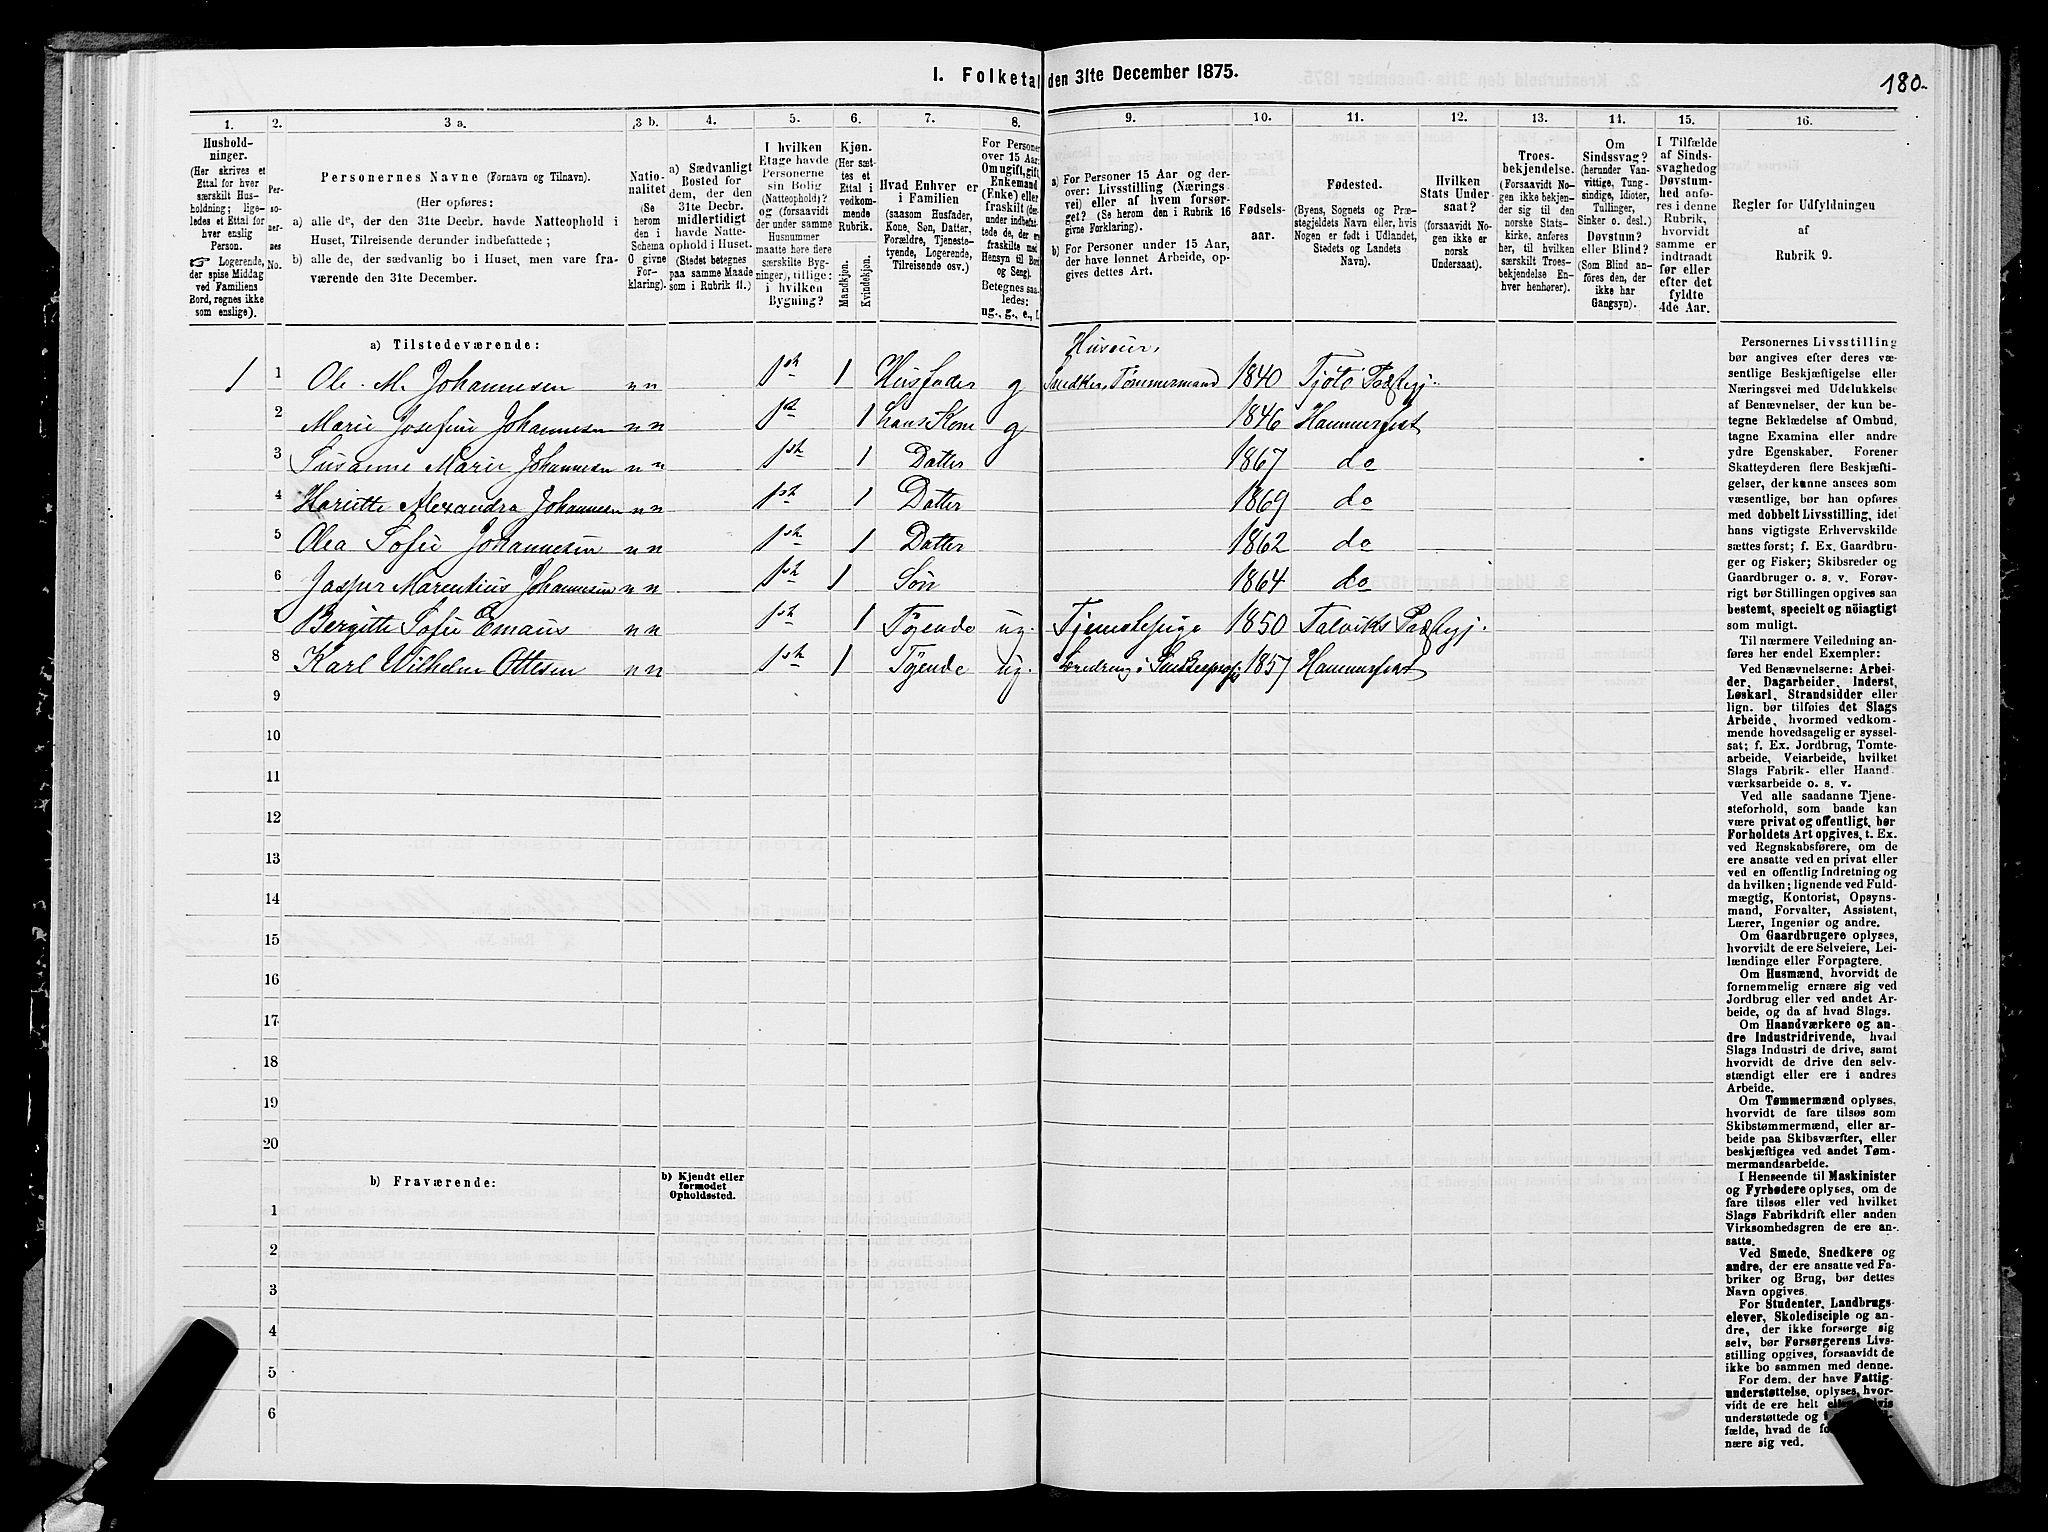 I. Folketal den 31te December 1875.
180.
1.
2.
3 a.
3 b.
4.
5.
6.
7.
8.
9.
10.
11.
12.
13.
14.
15.
16.
Hushold-
ninger.
(Her skrives et
Ettal for hver
særskilt Hus-
holdning; lige-
ledes et Ettal for
hver enslig
Person.
☞ Logerende,
der spise Middag
ved Familiens
Bord, regnes ikke
som enslige).
Per-
so-
ner-
nes
No.
Personernes Navne (Fornavn og Tilnavn).
(Her opføres:
a) alle de, der den 31te Decbr. havde Natteophold i
Huset, Tilreisende derunder indbefattede;
b) alle de, der sædvanlig bo i Huset, men vare fra-
værende den 31te December.
Natio-
nalitet
(Se
herom
den i
Schema
O givne
For-
klaring).
a) Sædvanligt
Bosted for
dem, der den
31te Decbr.
midlertidigt
havde Natte-
ophold i Huset.
(Stedet betegnes
paa samme Maade
som i Rubrik 11.)
I hvilken
Etage havde
Personerne
sin Bolig
(Natteophold)?
og (forsaavidt
der under samme
Husnummer
maatte høre flere
særskilte Byg-
ninger), tillige:
i hvilken
Bygning?
Kjøn.
(Her sæt-
tes et
Ettal i
vedkom-
mende
Rubrik.
Mandkjøn.
Kvindekjøn.
Hvad Enhver er
i Familien
(saasom Husfader,
Kone, Søn, Datter,
Forældre, Tjeneste-
tyende, Logerende,
Tilreisende osv.)
For Personer
over 15 Aar:
Om ugift, gift,
Enkemand
(Enke) eller
fraskilt (der-
under indbefat-
tede de, der ere
fraskilte med
Hensyn til Bord
og Seng).
Betegnes saa-
ledes:
ug., g., e., f.
a) For Personer 15 Aar og der-
over: Livsstilling (Nærings-
vei) eller af hvem forsør-
get? (Se herom den i Rubrik 16
givne Forklaring).
b) For Personer under 15 Aar,
der have lønnet Arbeide, op-
gives dettes Art.
Fødsels-
aar.
Fødested.
(Byens, Sognets og Præ-
stegjeldets Navn eller, hvis
Nogen er født i Udlandet,
Stedets og Landets
Navn).
Hvilken
Stats Under-
saat?
(forsaavidt No-
gen ikke er
norsk
Undersaat).
Troes-
bekjendelse.
(Forsaavidt No-
gen ikke bekjen-
der sig til den
norske Stats-
kirke, anføres
her, til hvilken
særskilt Troes-
bekjendelse En-
hver henhører).
Om
Sindssvag?
(herunder Van-
vittige, Tung-
sindige, Idioter,
Tullinger,
Sinker o. desl.)
Døvstum?
eller Blind?
(Som Blind an-
føres den, der
ikke har
Gangsyn).
I Tilfælde
af Sinds-
svaghed og
Døvstum-
hed anfø-
res i denne
Rubrik,
hvorvidt
samme er
indtraadt
før eller
efter det
fyldte
4de Aar.
Regler for Udfyldningen
af
Rubrik 9.
a) Tilstedeværende:
Huseier,
1 1 Ole M. Johannesen n n 1st 1 Husfader g Snedker, Tømmermand 1840 Tjøtø Præstegj.
2 Marie Josefine Johannesen n n 1st 1 hans Kone g 1846 Hammerfest
3 Susanne Marie Johannesen n n 1st 1 Datter 1867 do
4 Hariette Alexandra Johannesen n n 1st 1 Datter 1869 do
5 Olea Sofie Johannesen n n 1st 1 Datter 1862 do
6 Jasper Marentius Johannesen n n 1st 1 Søn 1864 do
7 Bergitte Sofie Emaus n n 1st 1 Tyende ug. Tjenestepige 1850 Talviks Præstegj.
8 Karl Wilhelm Ottesen n n 1st 1 Tyende ug. Læredreng i Snedkerprof. 1857 Hammerfest
9
10
11
12
13
14
15
16
17
18
19
20
b) Fraværende:
b) Kjendt eller
formodet
Opholdssted.
1
2
3
4
5
6
Personernes Livsstilling
bør angives efter deres væ-
sentlige Beskjæftigelse eller
Næringsvei med Udelukkelse
af Benævnelser, der kun be-
tegne Beklædelse af Ombud,
tagne Examina eller andre
ydre Egenskaber. Forener
Skatteyderen flere Beskjæfti-
gelser, der kunne ansees som
væsentlige, bør han opføres
med dobbelt Livsstilling, idet
hans vigtigste Erhvervskilde
sættes først; f. Ex. Gaardbru-
ger og Fisker; Skibsreder og
Gaardbruger o. s. v. Forøv-
rigt bør Stillingen opgives saa
bestemt, specielt og nöiagtigt
som muligt.
Til nærmere Veiledning an-
føres her endel Exempler:
Ved Benævnelserne: Arbei-
der, Dagarbeider, Inderst,
Løskarl, Strandsidder eller
lign. bør tilføies det Slags
Arbeide, hvormed vedkom-
mende hovedsagelig er syssel-
sat; f. Ex. Jordbrug, Tomte-
arbeide, Veiarbeide, hvilket
Slags Fabrik- eller Haand-
værksarbeide o. s. v.
Ved alle saadanne Tjene-
steforhold, som baade kan
være privat og offentligt, bør
Forholdets Art opgives, t. Ex.
ved Regnskabsførere, om de
ere ansatte ved en privat eller
ved en offentlig Indretning og
da hvilken; lignende ved Fuld-
mægtig, Kontorist, Opsyns-
mand, Forvalter, Assistent,
Lærer, Ingeniør og andre.
Om Gaardbrugere oplyses,
hvorvidt de ere Selveiere, Lei-
lændinge eller Forpagtere.
Om Husmænd, hvorvidt de
fornemmelig ernære sig ved
Jordbrug eller ved andet Ar-
beide, og da af hvad Slags.
Om Haandværkere og an-
dre Industridrivende, hvad
Slags Industri de drive, samt
hvorvidt de drive den selv-
stændigt eller ere i andres
Arbeide.
Om Tømmermænd oplyses,
hvorvidt de fare tilsøs som
Skibstømmermænd, eller ar-
beide paa Skibsværfter, eller
beskjæftiges ved andet Tøm-
mermandsarbeide.
I Henseende til Maskinister
og Fyrbødere oplyses, om de
fare tilsøs eller ved hvilket
Slags Fabrikdrift eller anden
Virksomhedsgren de ere an-
satte.
Ved Smede, Snedkere og
andre, der ere ansatte ved Fa-
briker og Brug, bør dettes
Navn opgives.
For Studenter, Landbrugs-
elever, Skoledisciple og an-
dre, der ikke forsørge sig
selv, bør Forsørgerens Livs-
stilling opgives, forsaavidt de
ikke bo sammen med denne.
For dem, der have Fattig-
understøttelse, oplyses, hvor-
vidt de ere helt
understøttede og
fælde, hvad de
nære sig ved.